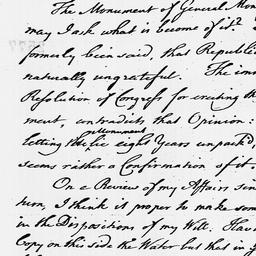 The Monument of General Mon
may I ask what is become of it?
formerly been said, that Republi
naturally ungrateful. The imm
Resolution of Congress for erecting th
ment, contradicts that Opinion:
letting the Monument lie eight Years unpack'd,
seems rather a Confirmation of it.
On a Review of my Affairs sin
turn, I think it proper to make som
in the Dispositions of my Will. Hav
Copy on this side the Water but that in